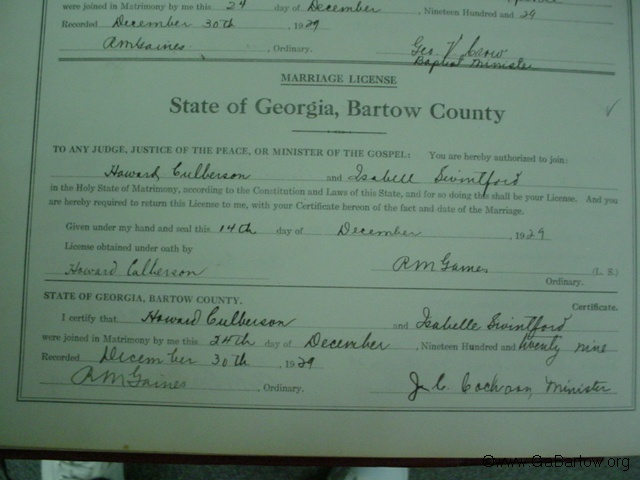 were joined in Matrimony by me this 24 day of December , Nineteen Hundred and 29
Recorded December 30th , 1929
RMGaines , Ordinary. Geo V Crow
Baptist Minister
MARRIAGE LICENSE
State of Georgia, Bartow County
TO ANY JUDGE, JUSTICE OF THE PEACE, OR MINISTER OF THE GOSPEL: You are hereby authorized to join:
Howard Culberson and Isabell Swintford
in the Holy State of Matrimony, according to the Constitution and Laws of this State, and for so doing this shall be your License. And you
are hereby required to return this License to me, with your Certificate hereon of the fact and date of the Marriage.
Given under my hand and seal this 14th day of December , 1929
License obtained under oath by
Howard Culberson RMGaines (L. S.)
Ordinary.
STATE OF GEORGIA, BARTOW COUNTY. Certificate.
I certify that Howard Culberson and Isabelle Swintford
were joined in Matrimony by me this 24th day of December , Nineteen Hundred and twenty nine
Recorded December 30th , 1929
RMGaines , Ordinary. J. C. Cochran, Minister
©www.GaBartow.org